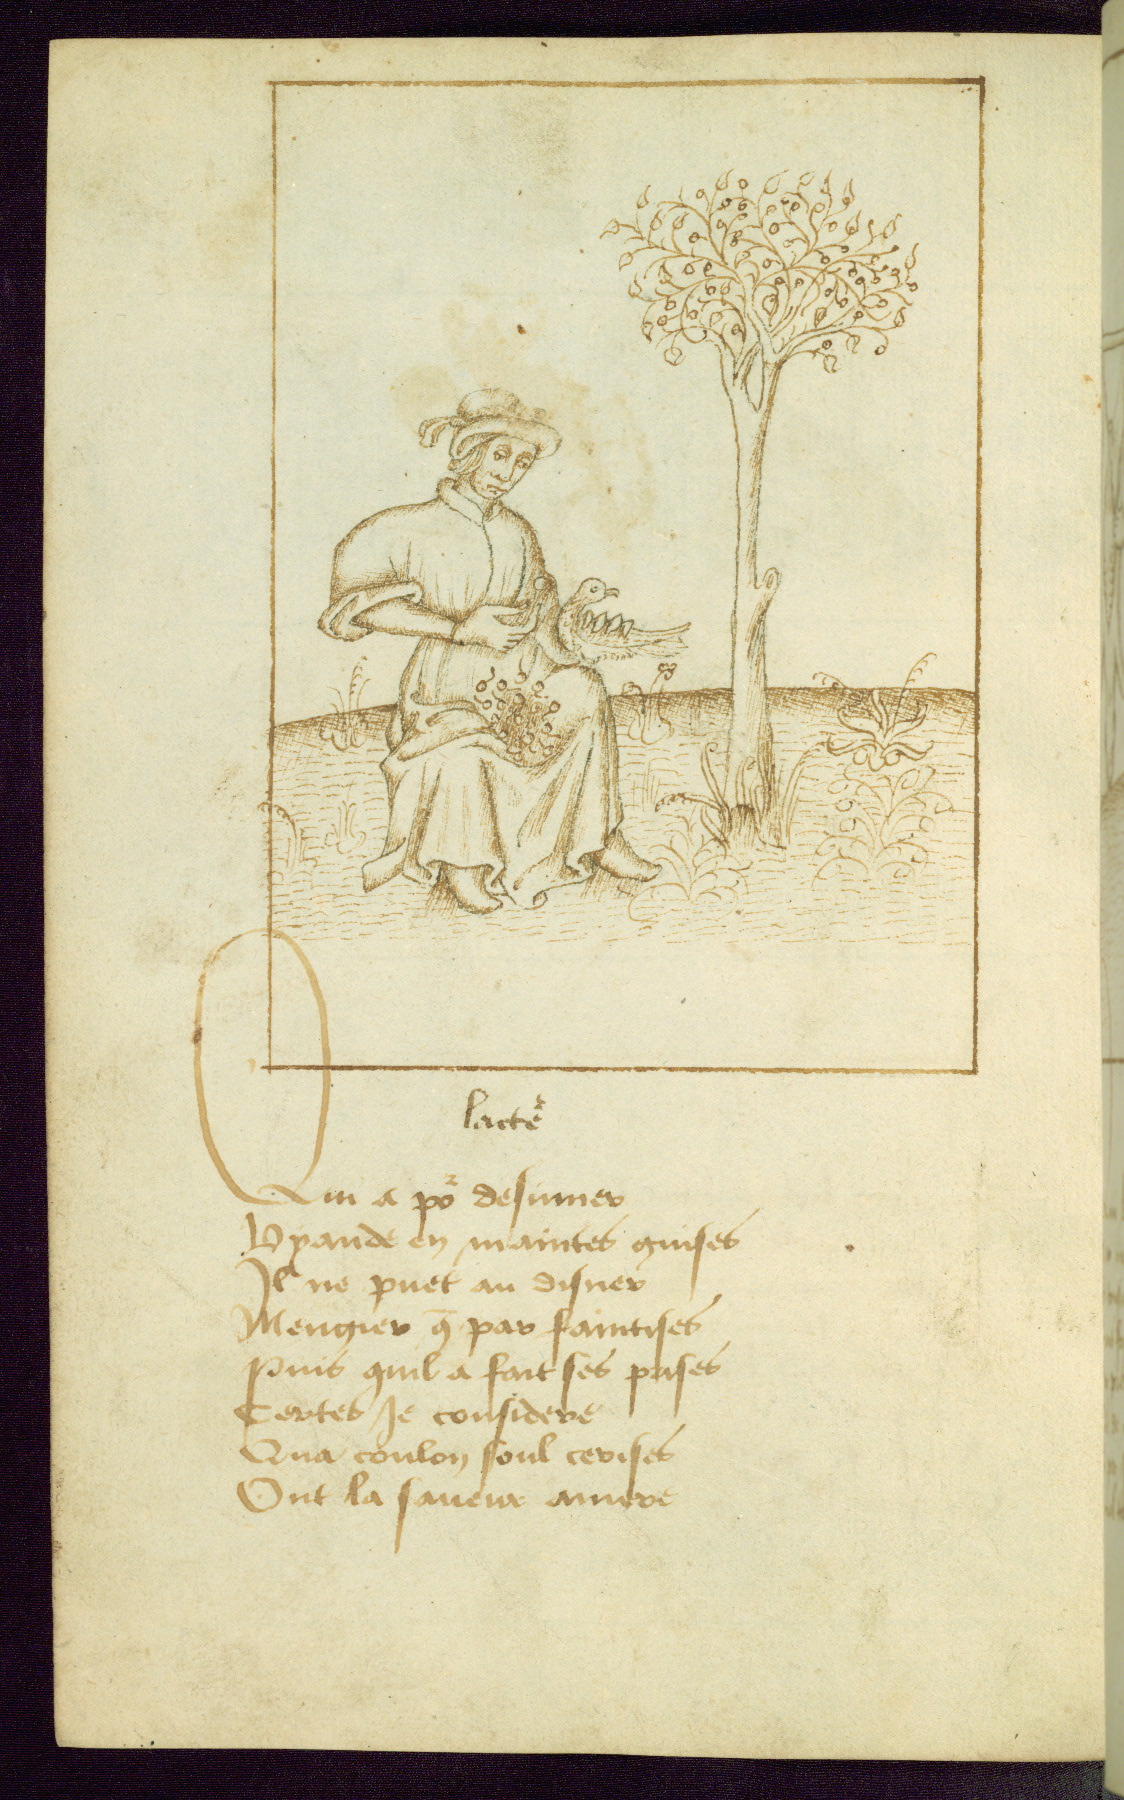 lacteʳ
Qui a poʳ desiuner
Vyande en maintes guises
Il ne puet au disner
Mengier q̄ par faintises
Puis quil a fait ses prises
Certes Je considere
Qua coulon soul cerises
Ont la saueur amere